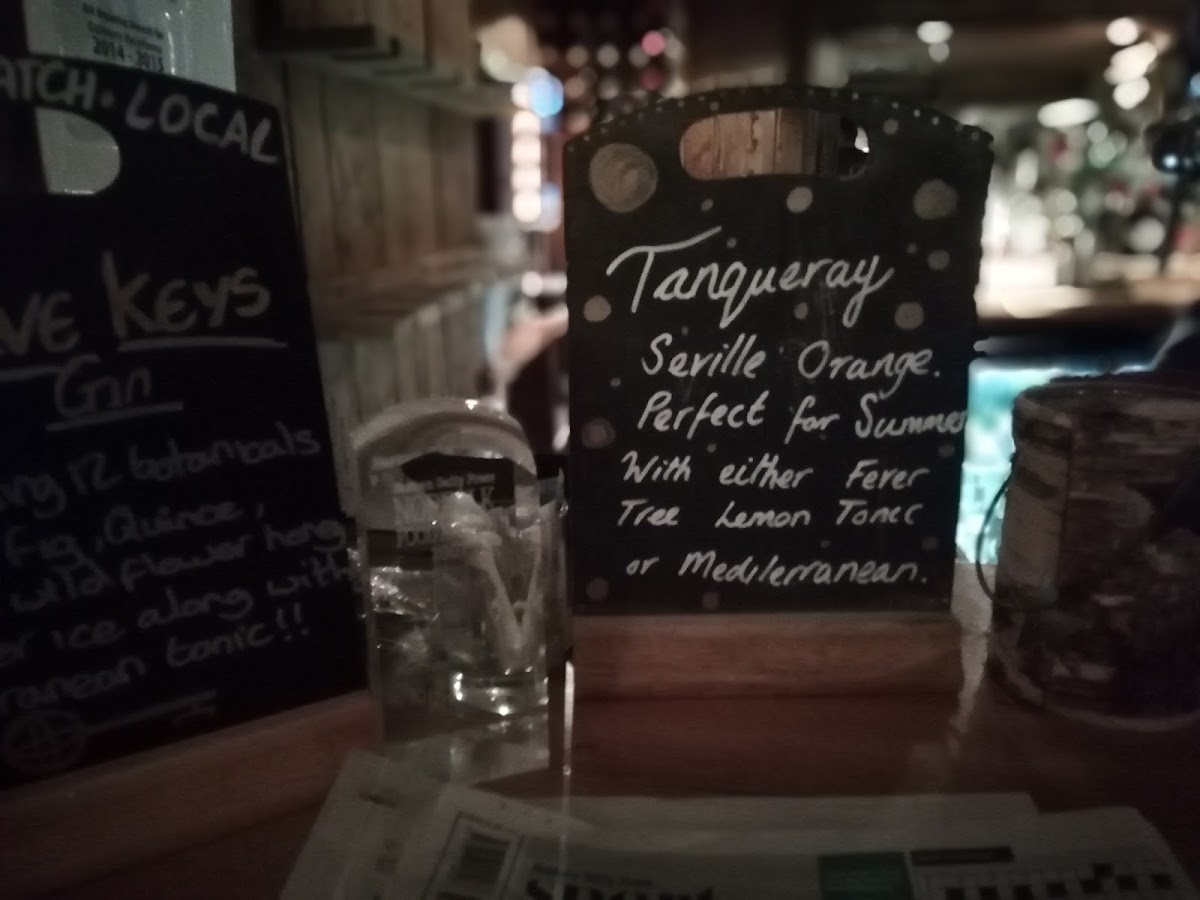 2014 - 2015
ATCH · LOCAL
VE KEYS
Gin
ing 12 botanicals
fig, Quince,
wild flower hon
er ice along with
ranean tonic!!
Tanqueray
Seville Orange.
Perfect for Summer
With either Fever
Tree Lemon Tonic
or Mediterranean.